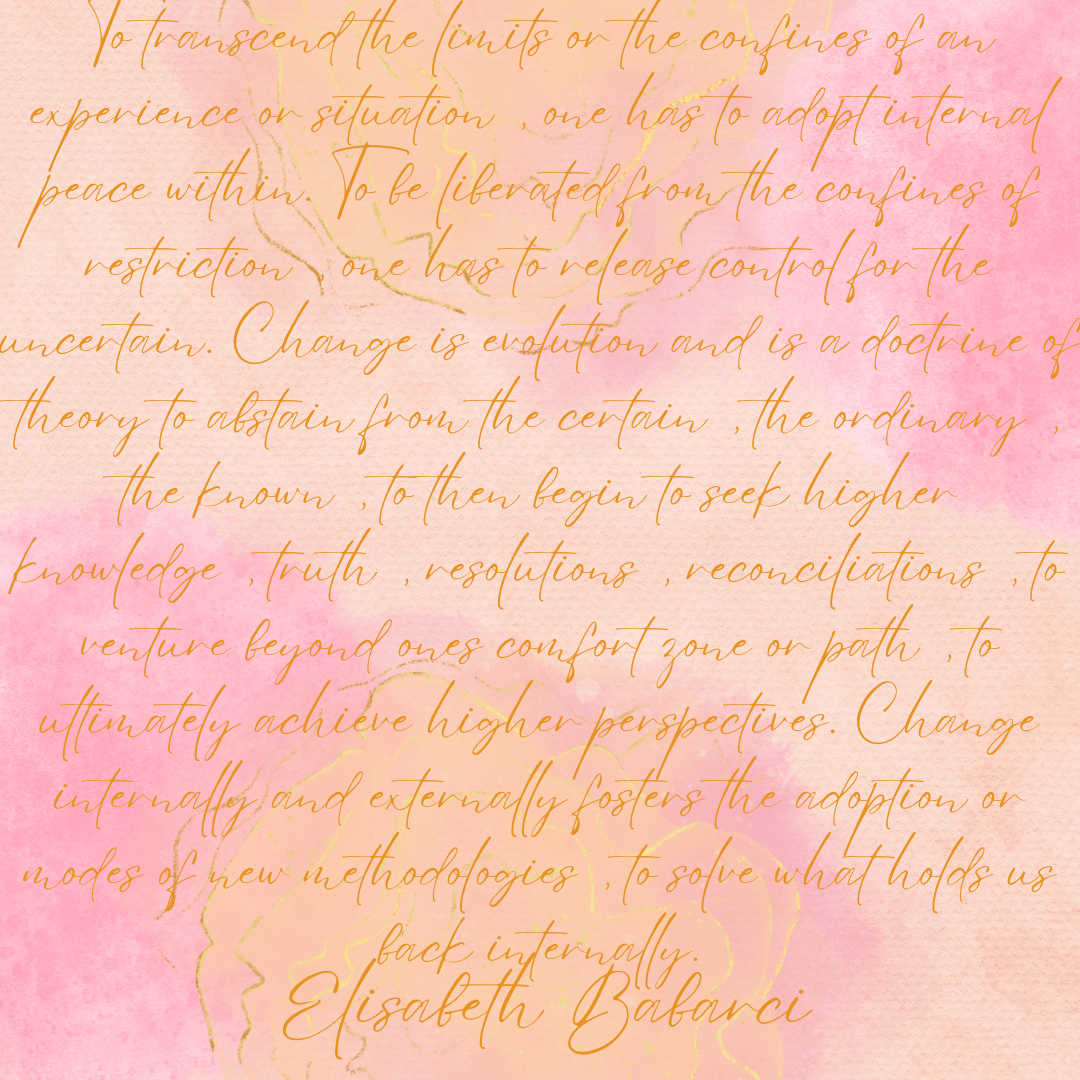 To transcend the limits or the confines of an
experience or situation , one has to adopt internal
peace within. To be liberated from the confines of
restriction one has to release control for the
uncertain. Change is evolution and is a doctrine of
theory to abstain from the certain , the ordinary ,
the known , to then begin to seek higher
knowledge , truth , resolutions , reconciliations , to
venture beyond ones comfort zone or path , to
ultimately achieve higher perspectives. Change
internally and externally fosters the adoption or
modes of new methodologies , to solve what holds us
back internally.
Elisabeth Babarci